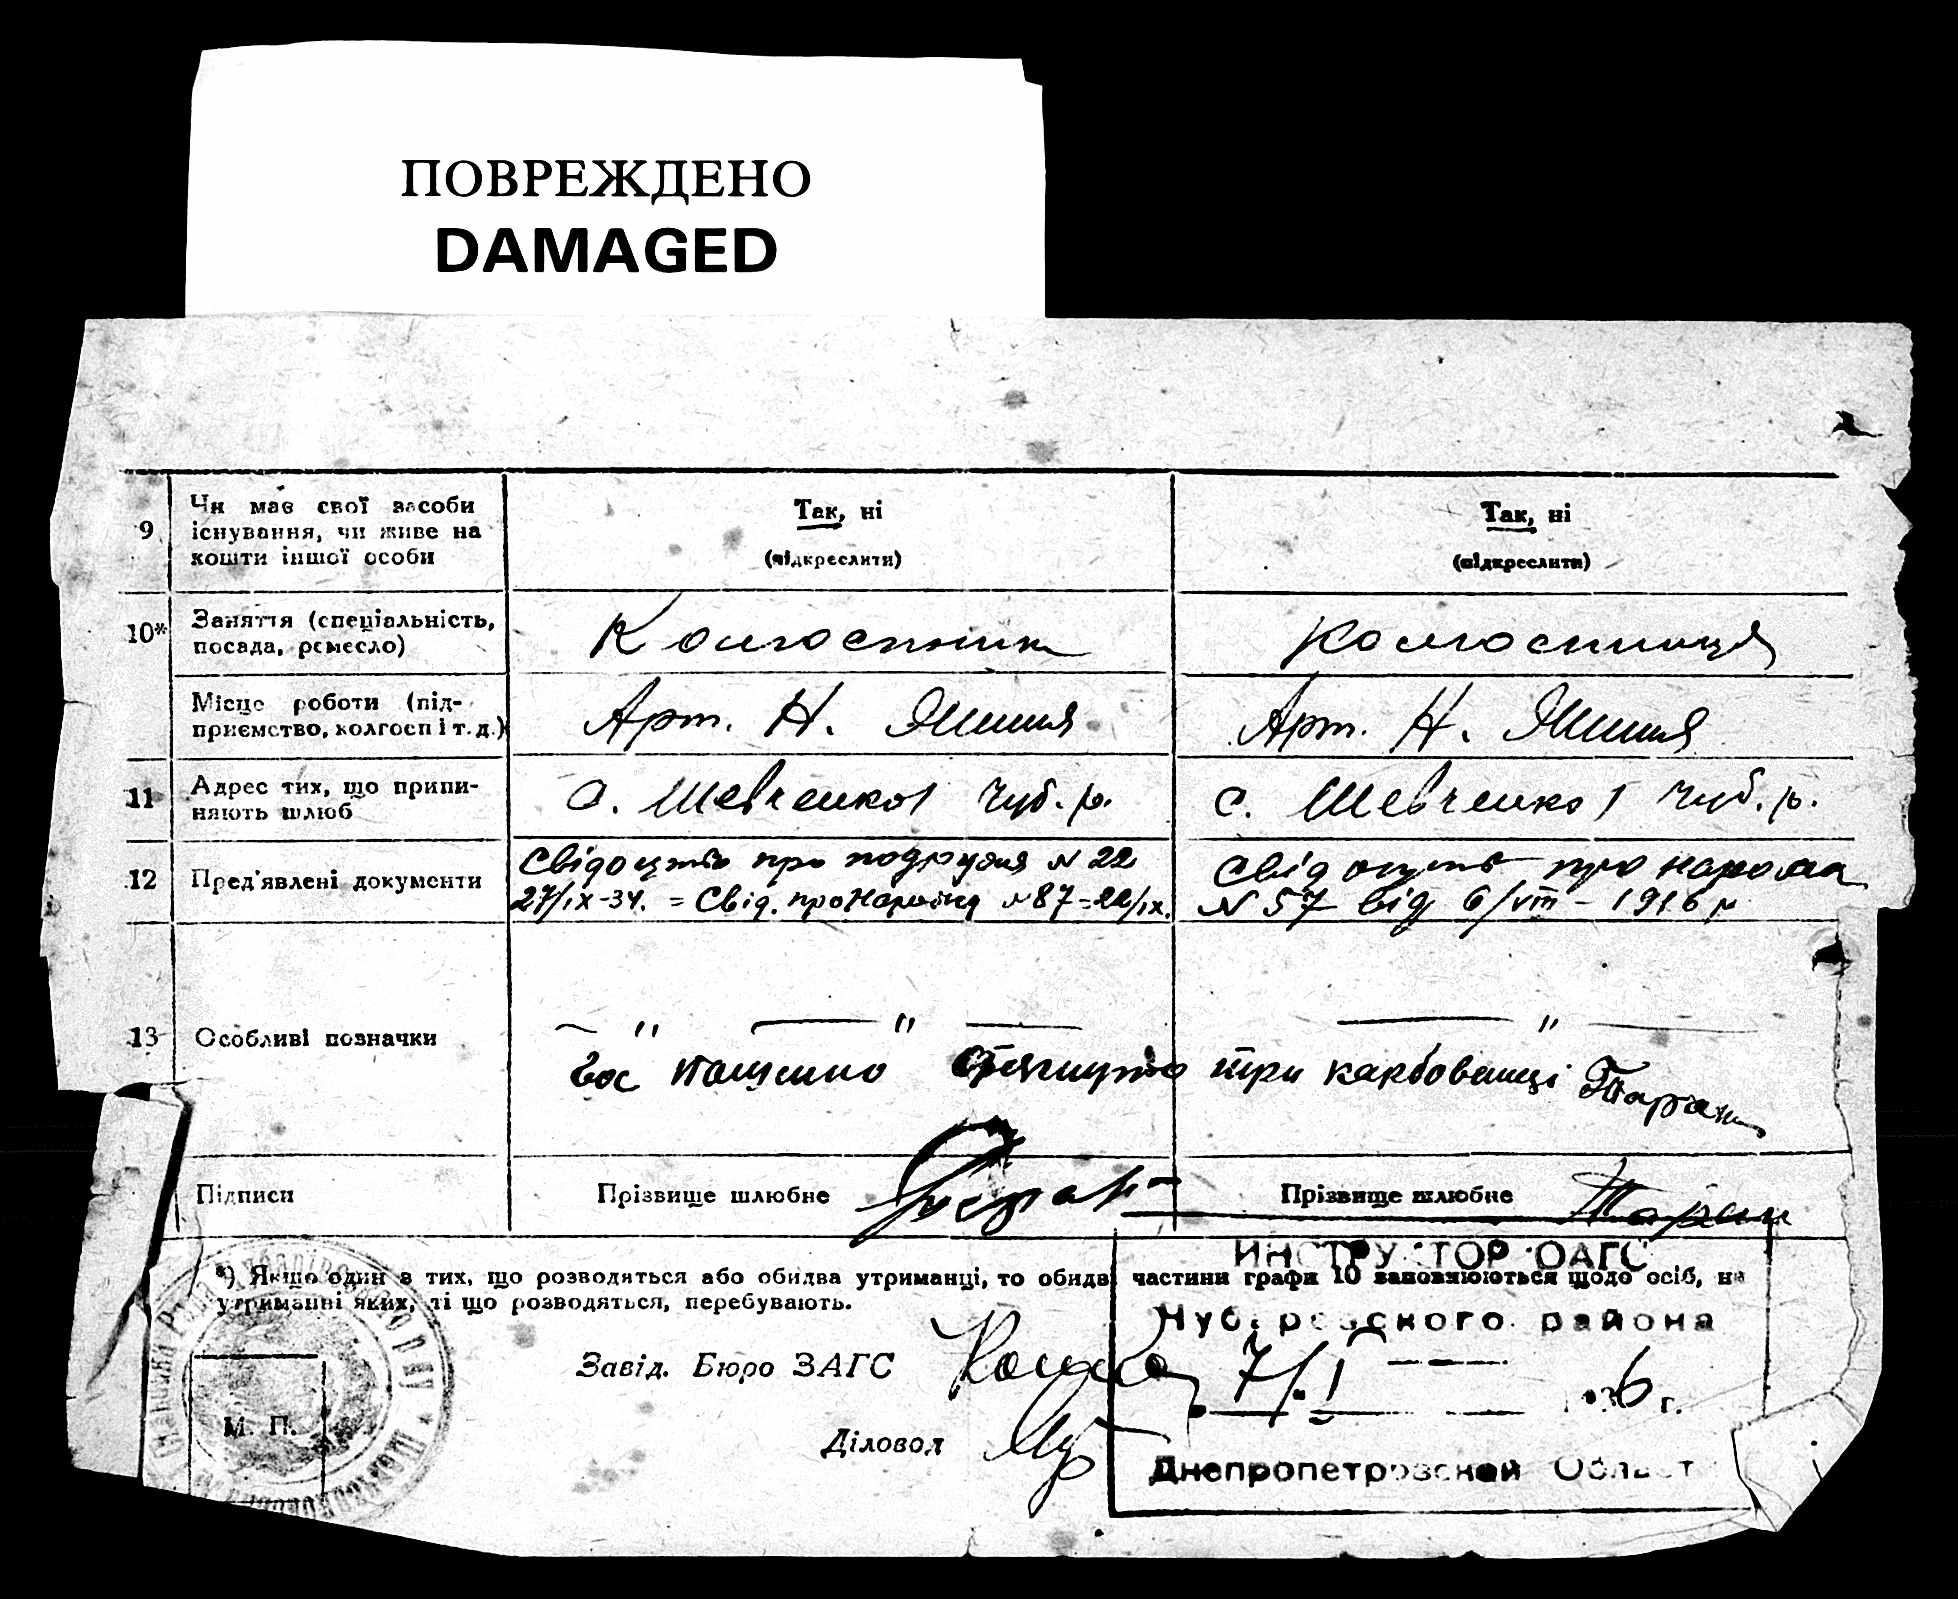 ПОВРЕЖДЕНО
DAMAGED
9 Чи має свої засоби існування, чи живе на кошти іншої особи
Так, ні
(підкреслити)
Так, ні
(підкреслити)
10* Заняття (спеціальність, посада, ремесло)
Колгоспник
Колгоспниця
Місце роботи (підприємство, колгосп і т. д.)
Арт. Н. Життя
Арт. Н. Життя
11 Адрес тих, що припиняють шлюб
с. Шевченко 1 Чуб. р.
с. Шевченко 1 Чуб. р.
12 Пред'явлені документи
Свідоцтво про подружжя N 22
27/IX-34. = Свід. про народжд N 87 = 22/IX.
Свідоцтв про народж
N 57 від 6/VIII - 1916 р
13 Особливі позначки
" "
"
три карбованці Таран
Підписи
Прізвище шлюбне
Прізвище шлюбне Таран
*) Якщо один з тих, що розводяться або обидва утриманці, то обидві частини графи 10 заповнюються щодо осіб, на
утриманні яких, ті що розводяться, перебувають.
ИНСТРУКТОР ОАГС
Чубаровского района
7/I 1936 г.
Днепропетровской Област
Завід. Бюро ЗАГС
Діловод
М. П.